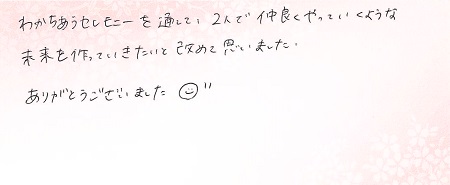 わかちあうセレモニーを通して、2人で仲良くやっていくような
未来を作っていきたいと改めて思いました.
ありがとうございました